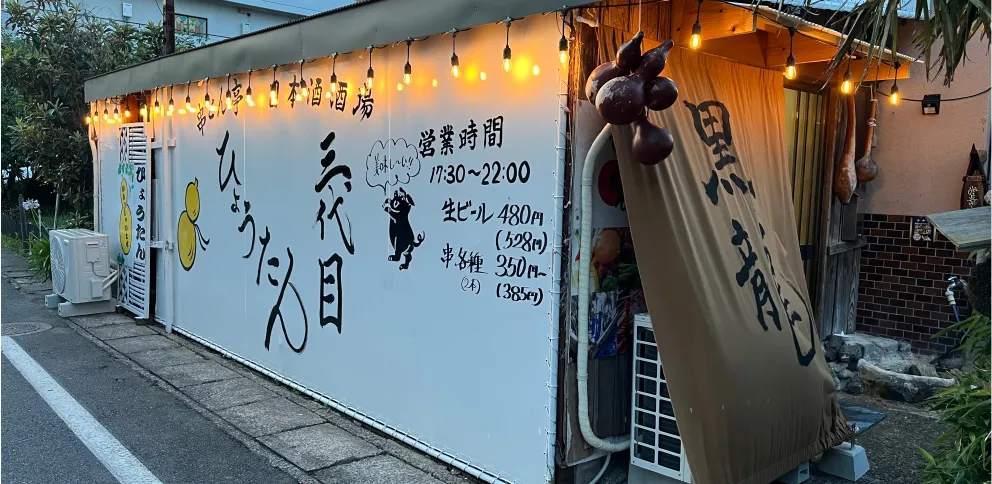 本酒酒場
三代目
ひょうたん
ひょうたん
美味し〜い!!
営業時間
17:30〜22:00
生ビール 480円
(528円)
串各種 350円〜
(2本) (385円)
黒龍